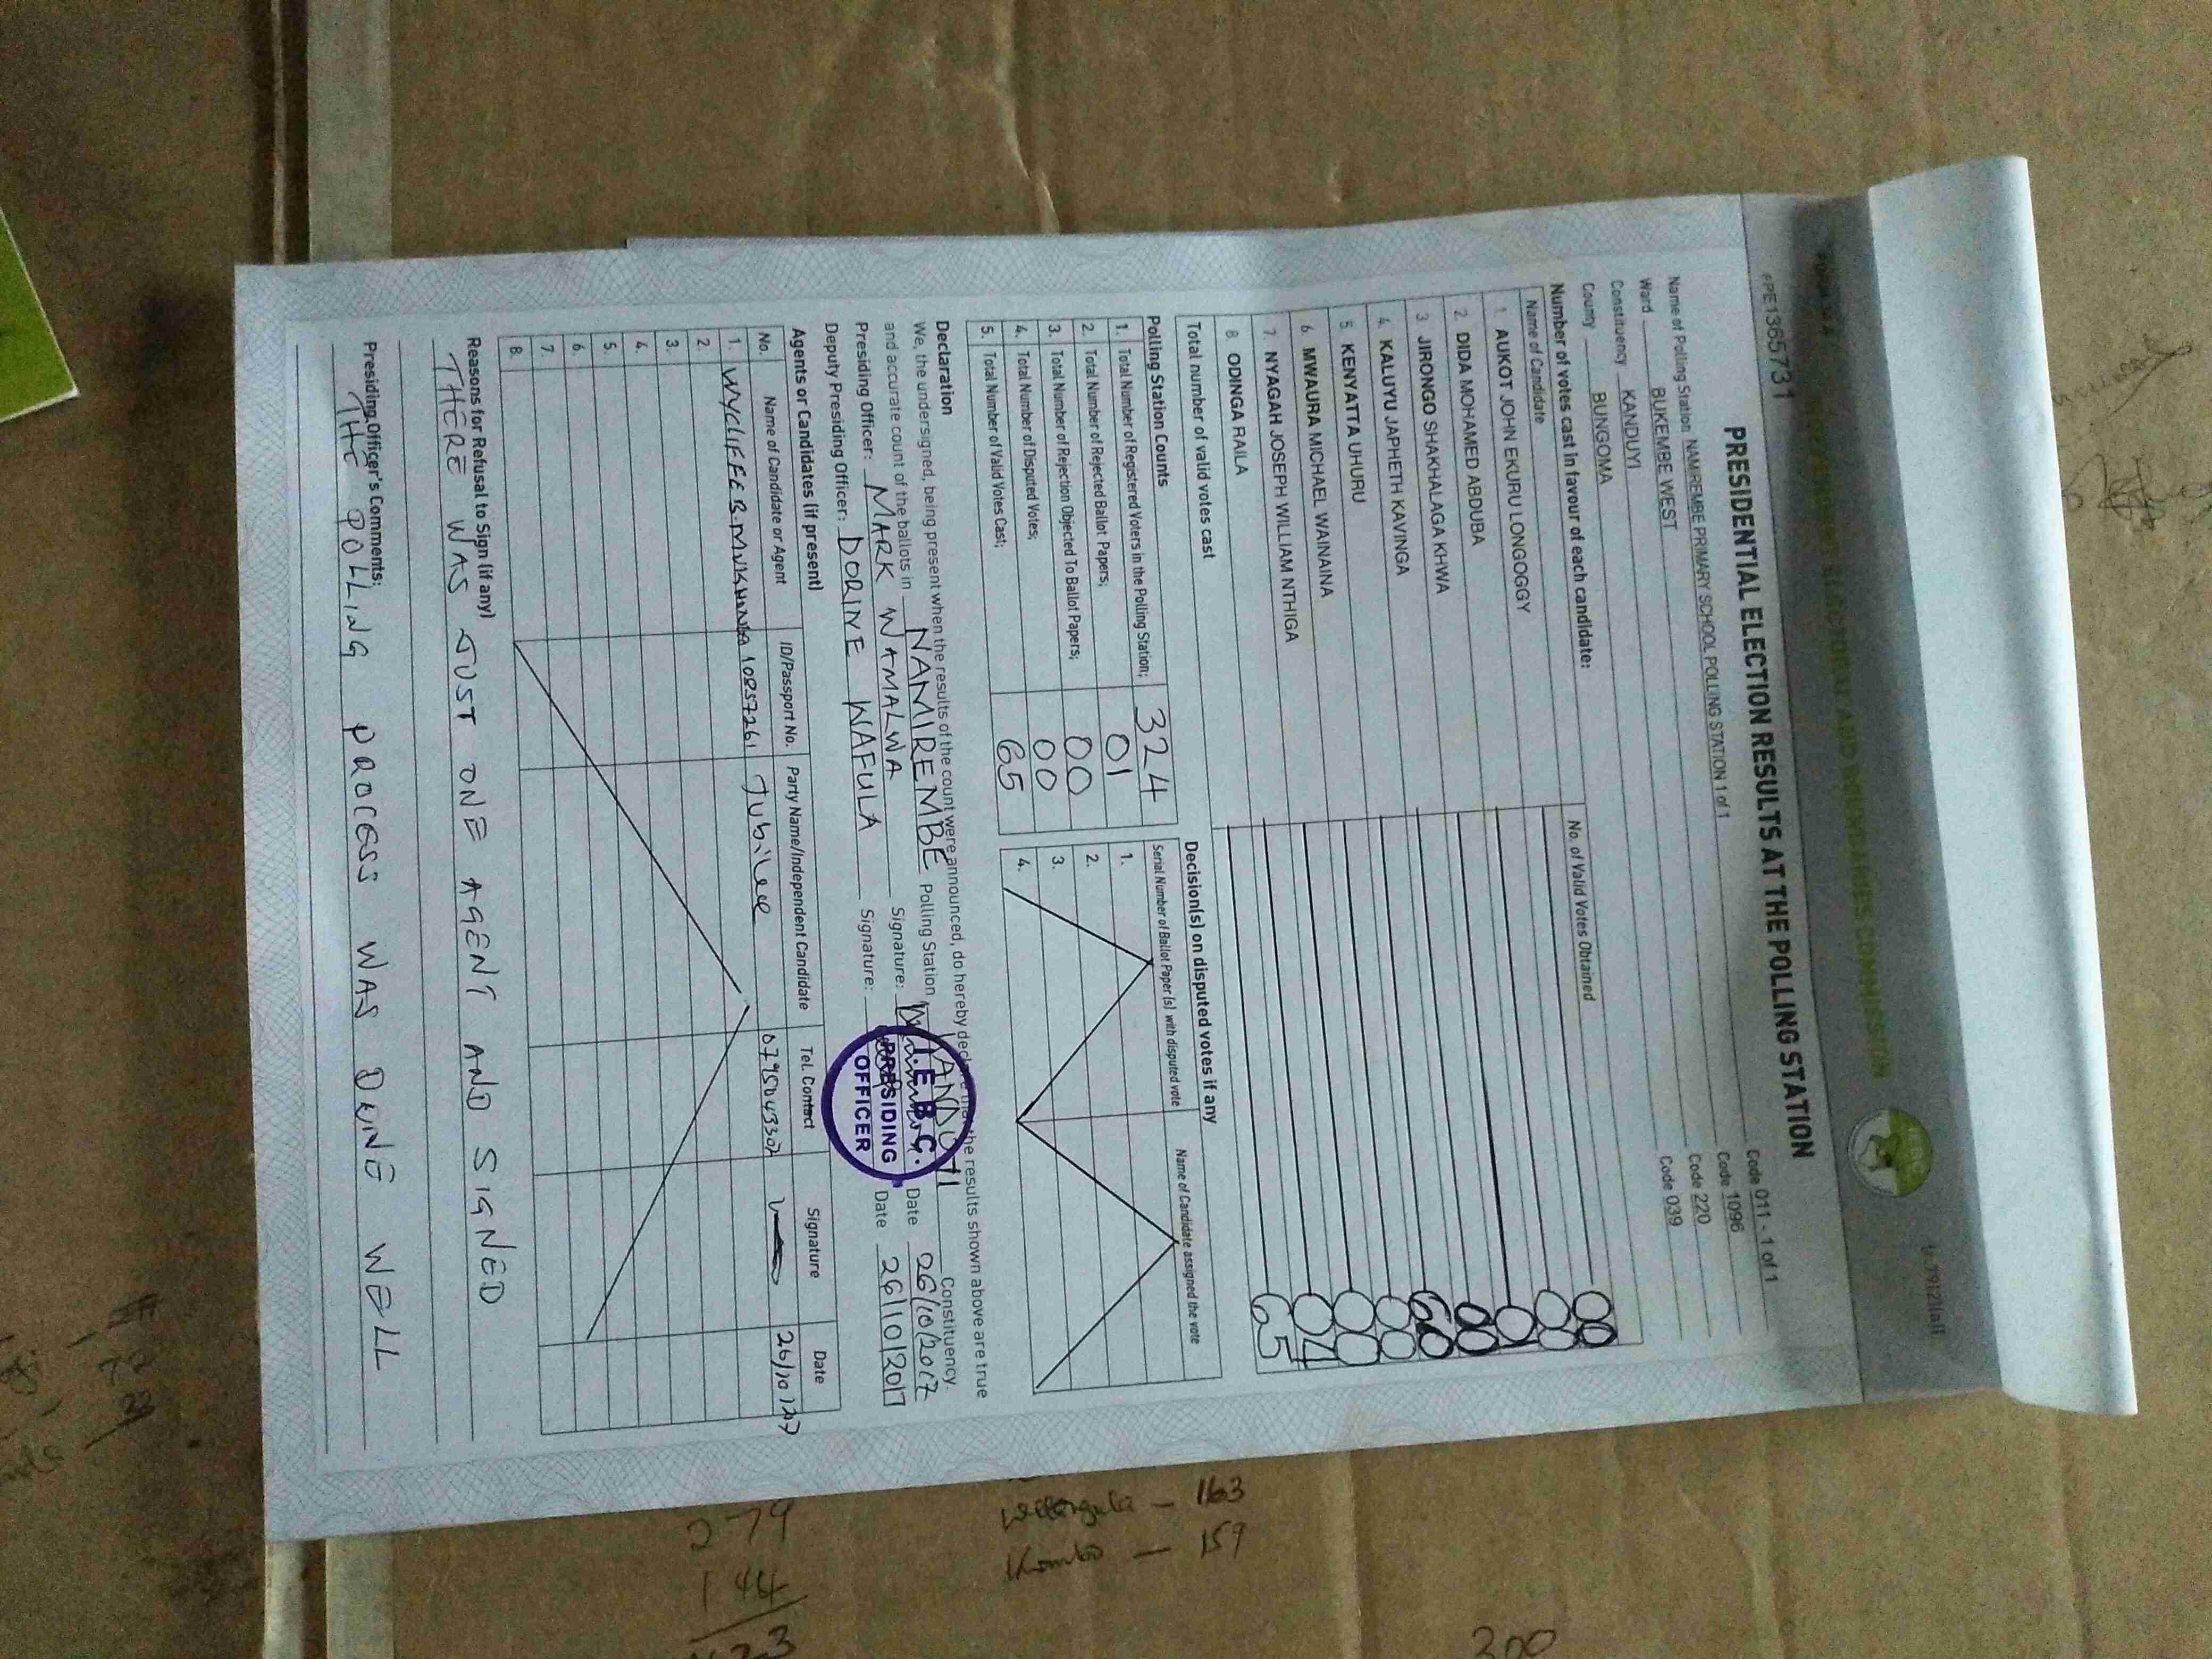 PPE1365731
PRESIDENTIAL ELECTION RESULTS AT THE POLLING STATION
Name of Polling Station NAMIREMBE PRIMARY SCHOOL POLLING STATION 1 of 1 Code 011 - 1 of 1
Ward BUKEMBE WEST Code 1096
Constituency KANDUYI Code 220
County BUNGOMA Code 039
Number of votes cast in favour of each candidate:
Name of Candidate No. of Valid Votes Obtained
1. AUKOT JOHN EKURU LONGOGGY 00
2. DIDA MOHAMED ABDUBA 00
3. JIRONGO SHAKHALAGA KHWA 01
4. KALUYU JAPHETH KAVINGA 00
5. KENYATTA UHURU 60
6. MWAURA MICHAEL WAINAINA 00
7. NYAGAH JOSEPH WILLIAM NTHIGA 00
8. ODINGA RAILA 04
Total number of valid votes cast 65
Polling Station Counts
1. Total Number of Registered Voters in the Polling Station; 324
2. Total Number of Rejected Ballot Papers; 01
3. Total Number of Rejection Objected To Ballot Papers; 00
4. Total Number of Disputed Votes; 00
5. Total Number of Valid Votes Cast; 65
Decision(s) on disputed votes if any
Serial Number of Ballot Paper (s) with disputed vote Name of Candidate assigned the vote
1.
2.
3.
4.
Declaration
We, the undersigned, being present when the results of the count were announced, do hereby declare that the results shown above are true
and accurate count of the ballots in NAMIREMBE Polling Station KANDUYI Constituency.
Presiding Officer: MARK WAMALWA Signature: Date 26/10/2017
Deputy Presiding Officer: DORINE WAFULA Signature: Date 26/10/2017
I.E.B.C.
PRESIDING
OFFICER
Agents or Candidates (if present)
No. Name of Candidate or Agent ID/Passport No. Party Name/Independent Candidate Tel. Contact Signature Date
1. WYCLIFFE B. 10857261 Jubilee 0795043307
2.
3.
4.
5.
6.
7.
8.
Reasons for Refusal to Sign (if any)
THERE WAS JUST ONE AGENT AND SIGNED
Presiding Officer's Comments:
THE POLLING PROCESS WAS DONE WELL
279
144
163
159
300